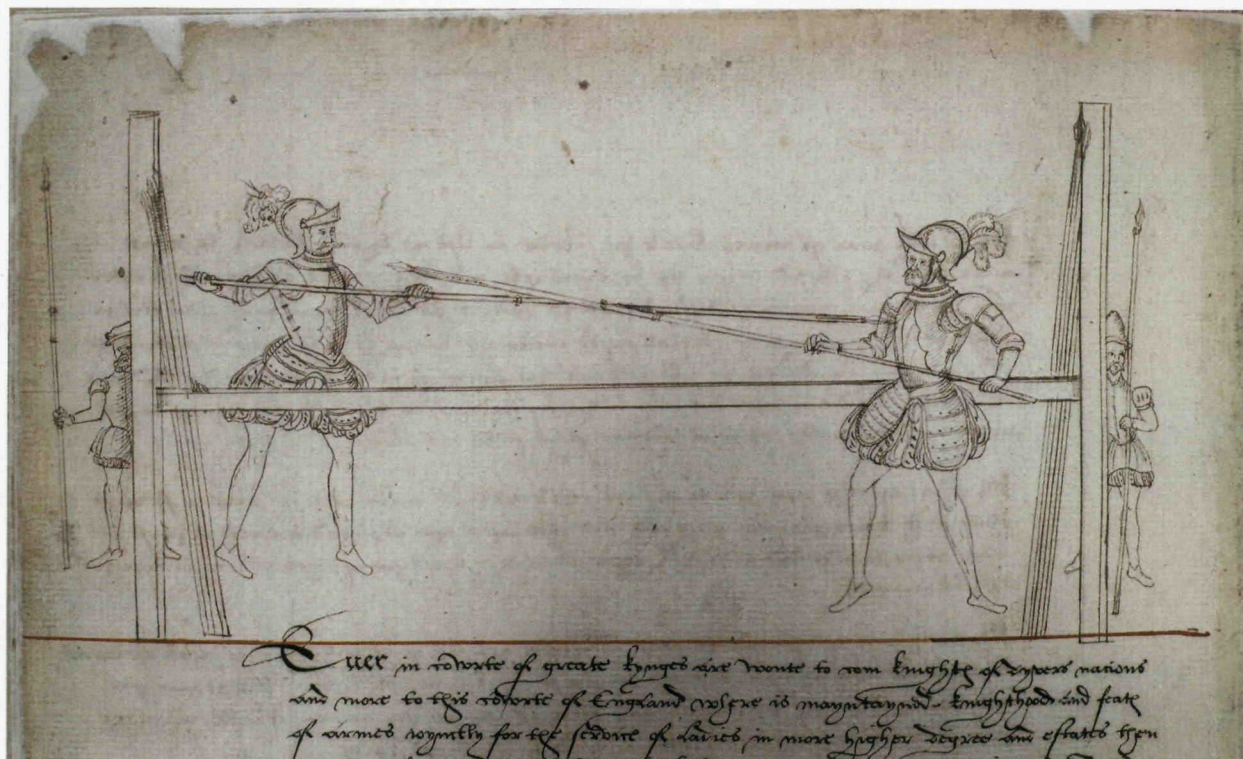 Ever in cowrte of greate kynges are wonte to com knightℯ of dyvers nacions
and more to this cowrte of England where is mayntayned knighthood and featℯ
of armes for the service of ladies in more higher degree and estates then